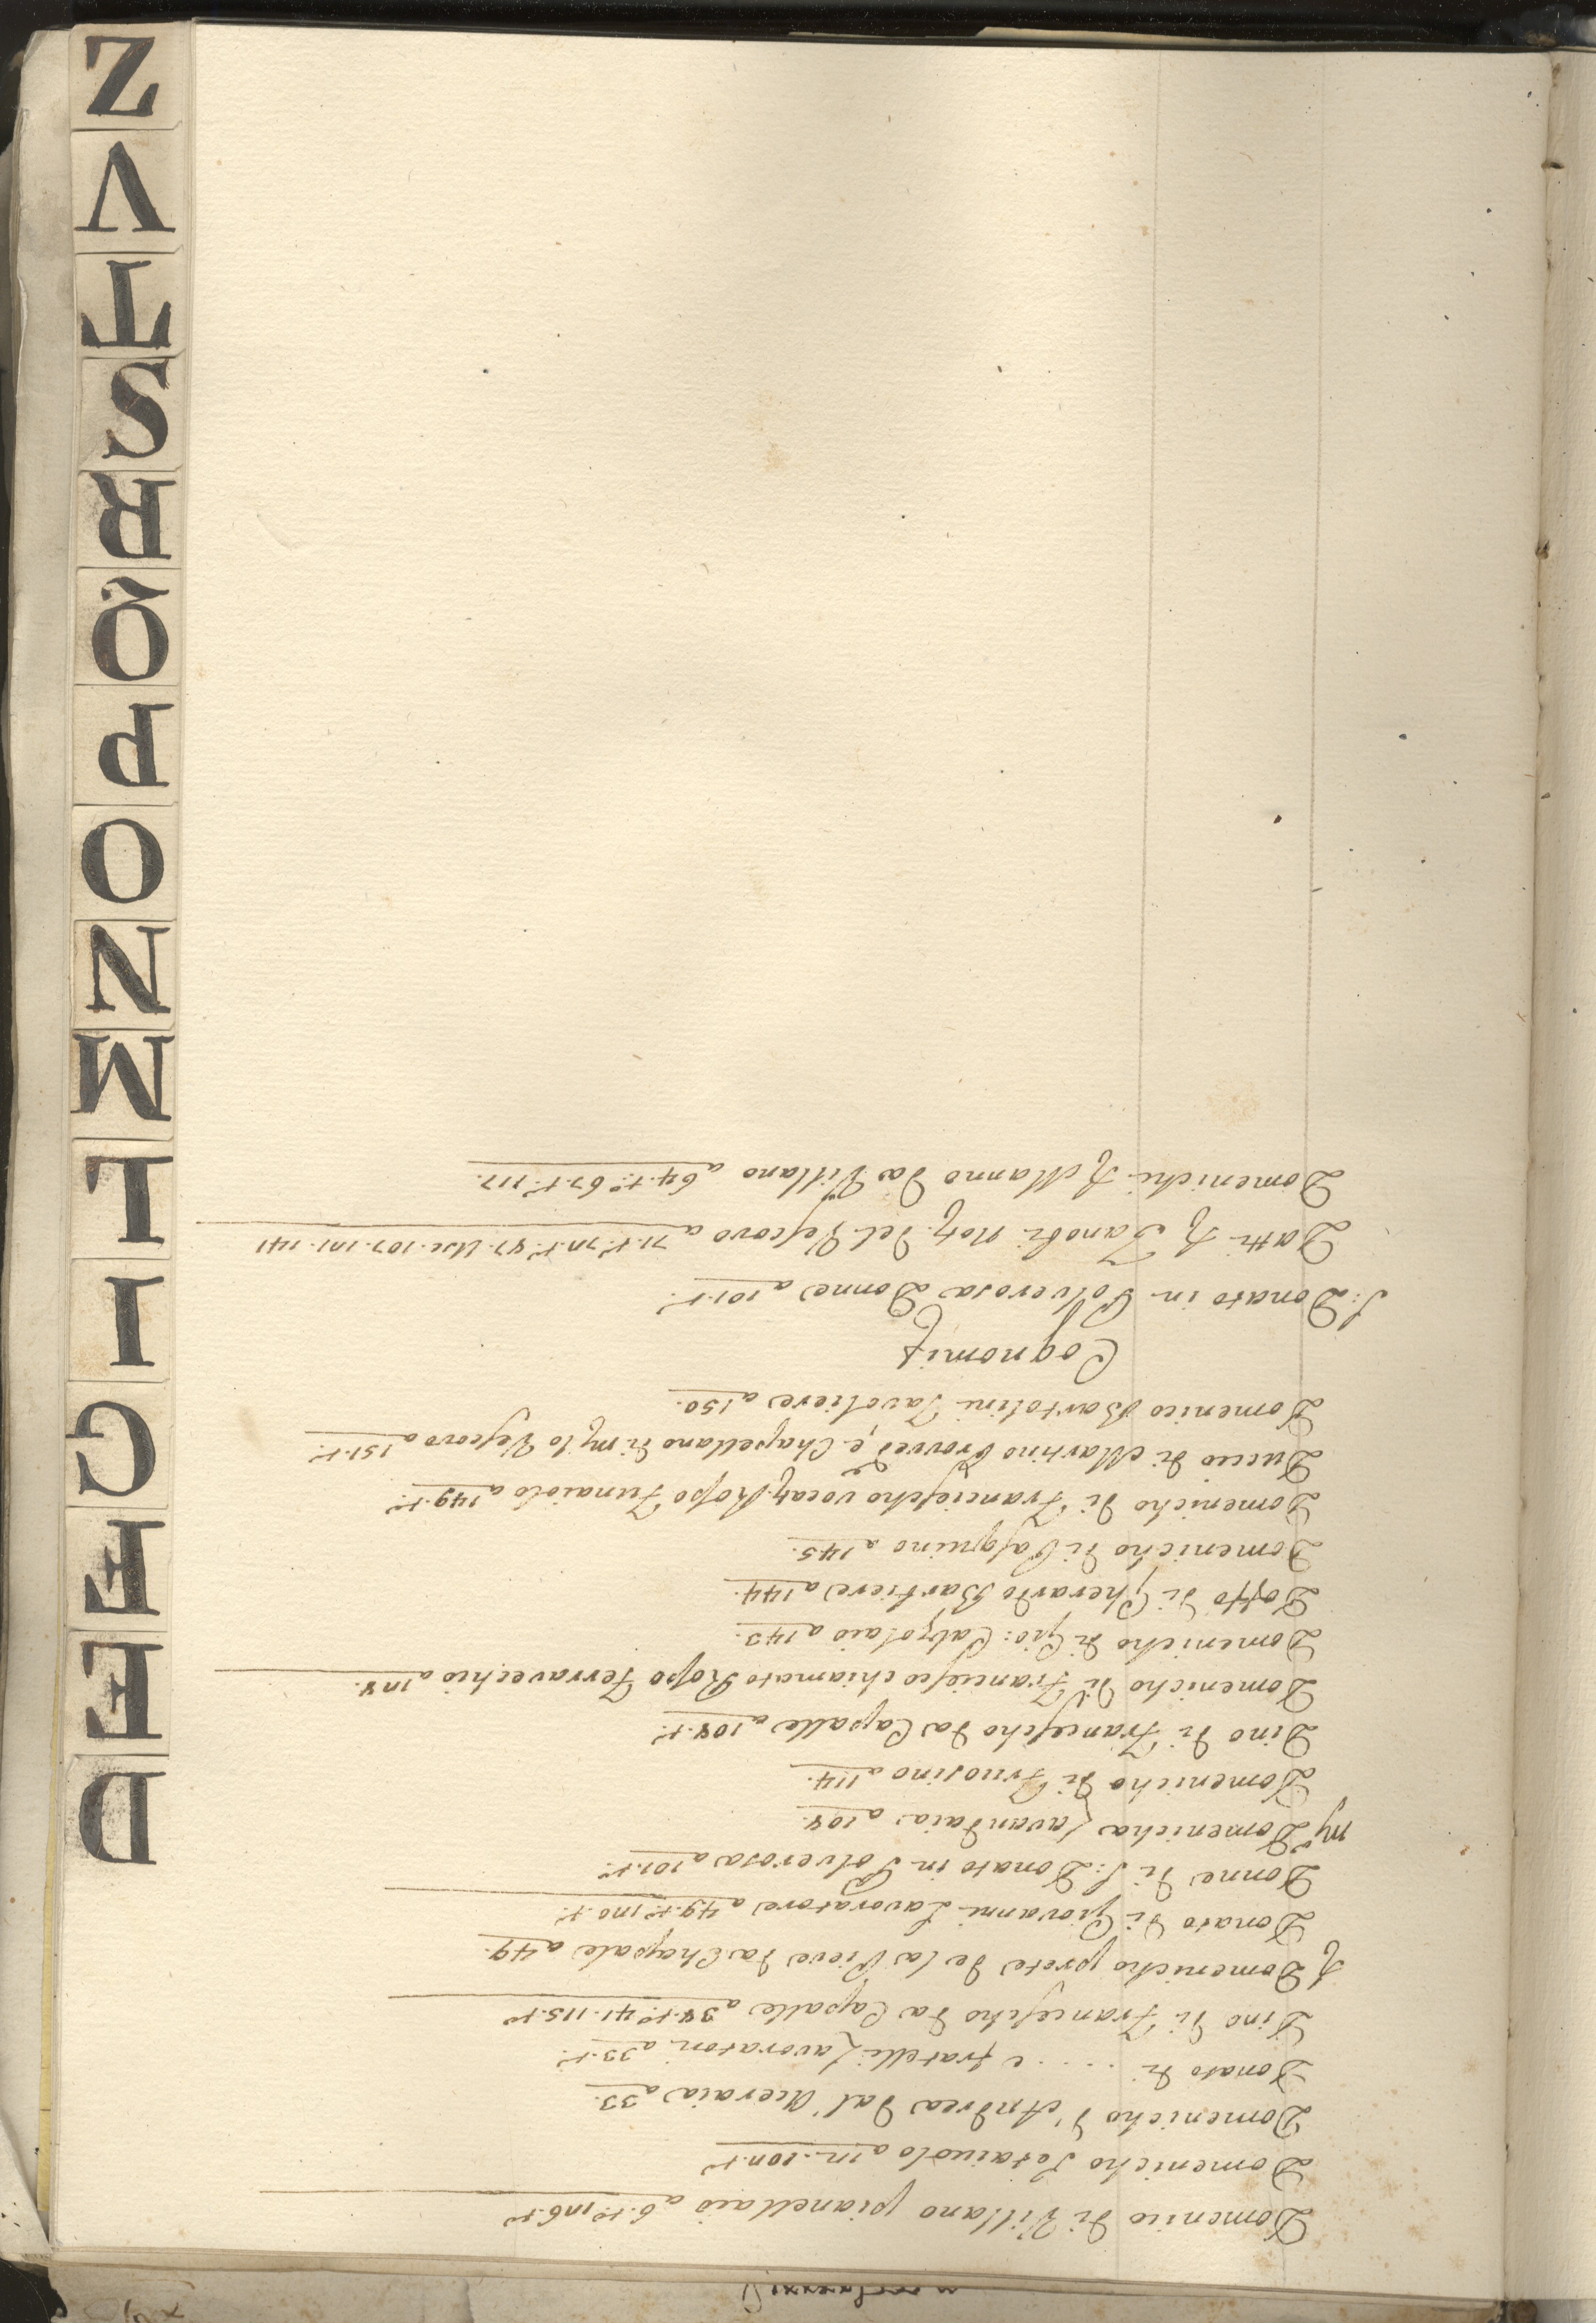 Domenico di Villano pianellaio a 6.t.° 126.t.°
Domenicho Setaiuolo a 12. 102.t.°
Domenicho d'Andrea dal' Uceraia a 33.
Donato di .... e fratelli Lavoratori a 33.t.°
Dino di Francescho da Capalle a 38.t.° 41. 115.t.°
Domenicho prete de la Pieve da Chapale a 49.
Donato di Giovanni Lavoratore a 49.t.° 120.t.°
Donne di S: Donato in Polverosa a 101.t.°
Domenicha Lavandaia a 108.
Domenicho di Fruosino a 114.
Dino di Francescho da Capalle a 108.t.°
Domenicho di Franciesco chiamato Rosso Ferravechio a 128.
Domenicho di Gio: Calzolaio a 143.
Doffo di Gherardo Barbiere a 144.
Domenicho di Pasquino a 145.
Domenicho di Franciescho vocat. Rosso Funaiolo a 149.t.°
Duccio di Martino Proved.e, e Chapellano di m. lo Vescovo a 151.t.°
Domenico Bartolini Tavoliere a 150.
Cognomi
S: Donato in Polverosa Donne a 101.t.°
Datti Zanobi not. del Vescovo a 71.t.° 72.t.° 87. Usc. 107. 121. 141
Domenichi Manno da Villano a 64.t.° 67.t.° 117.
D
E
F
G
I
L
M
N
O
P
Q
R
S
T
V
Z